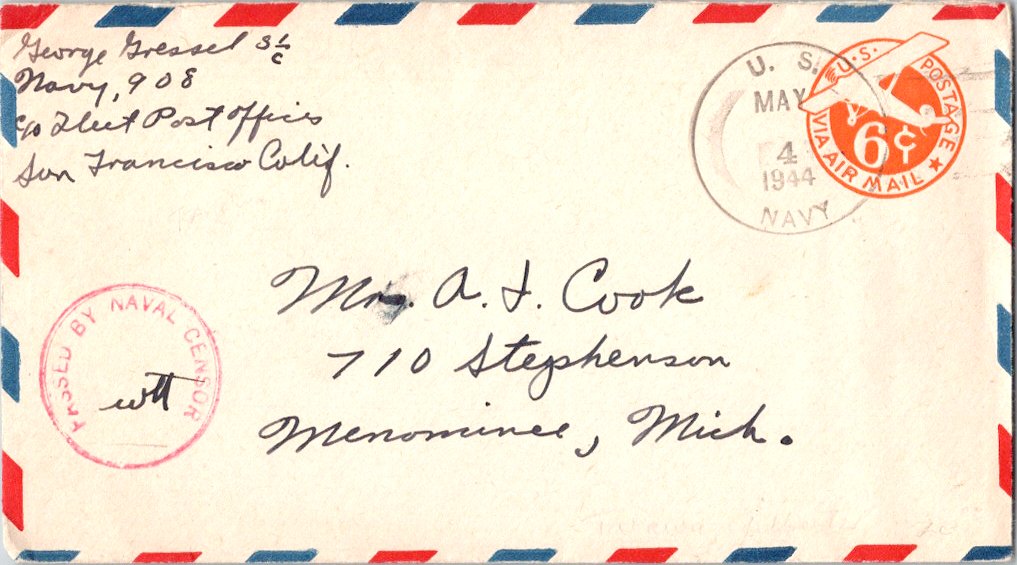 George Gressel S 1/c
Navy, 908
c/o Fleet Post Office
San Francisco Calif.
U. S.
MAY
4
1944
NAVY
U.S. POSTAGE
6¢
VIA AIR MAIL
PASSED BY NAVAL CENSOR
Mrs. A. J. Cook
710 Stephenson
Menominee, Mich.